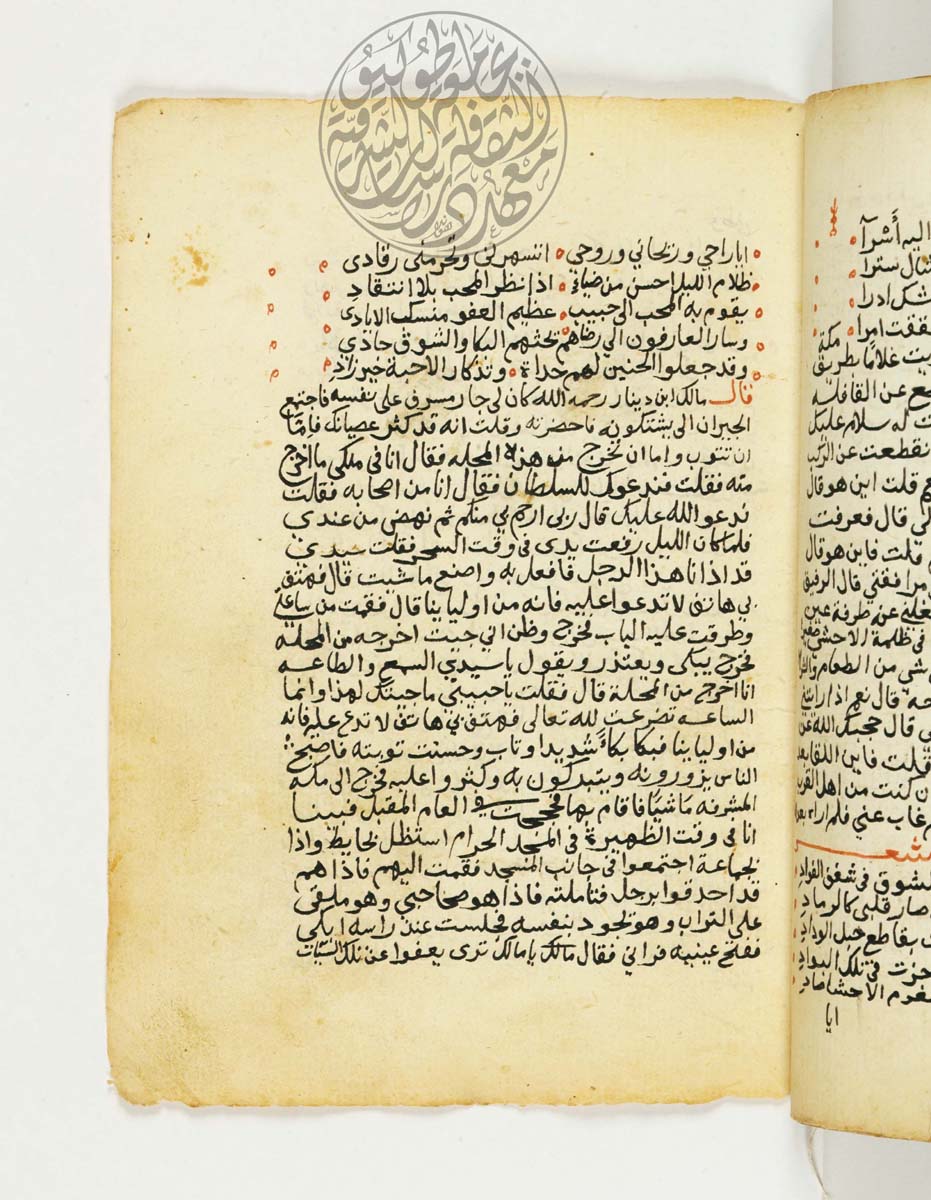 ايا راحي وريحاني وروحي اتسهرني وتحرمني رقادى
ظلام الليل احسن من ضيائي اذا نظر المحب بلا انتقاد
يقوم به المحب الى حبيب عظيم العفو منسكب الايادى
وسار العارفون الى رضاهم تحثهم البكا والشوق حادى
وقد جعلوا الحنين لهم حداة وتذكار الاحبة خير زاد
قال مالك ابن دينار رحمه الله كان لى جار مسرف على نفسه فاجتمع
الجيران الى يشتكونه فاحضرته وقلت انه قد كثر عصيانك فامّا
ان تتوب واما ان تخرج من هذه المحله فقال انا فى ملكى ما اخرج
منه فقلت فندعوك للسلطان فقال انا من اصحابه فقلت
ندعو الله عليك قال ربى ارحم بي منكم ثم نهض من عندي
فلما كان الليل رفعت يدى فى وقت السحر فقلت سيدي
قد اذانا هذا الرجل فافعل به واصنع ما شيت قال فهتف
بي هاتف لا تدعوا عليه فانه من اوليا ينا قال فقمت من ساعتى
وطرقت عليه الباب فخرج وظن انى جيت اخرجه من المحله
فخرج يبكى ويعتذر ويقول يا سيدي السمع والطاعه
انا اخرج من المحلة قال فقلت يا حبيبي ما جيتك لهذا وانما
الساعه تضرعت لله تعالى فهتف بي هاتف لا تدع عليه فانه
من اوليا ينا فبكا بكاءً شديدا وتاب وحسنت توبته فاصبح
الناس يزورونه ويتبركون به وكثروا عليه فخرج الى مكه
المشرفه ماشيًا فاقام بها فحججت فى العام المقبل فبينا
انا فى وقت الظهيرة فى المسجد الحرام استظل بحايط واذا
بجماعة اجتمعوا فى جانب المسجد فقمت اليهم فاذا هم
قد احدقوا برجل فتاملته فاذا هو صاحبي وهو ملقى
على التراب وهو يجود بنفسه فجلست عند راسه ابكى
ففتح عينيه فرانى فقال مالك يا مالك ترى يعفوا عن تلك السيات
اليه أشرآ
سترا
ادرا
امرا
مكة
غلامًا بطريق
ع عن القافله
له سلام عليك
انقطعت عن الركب
قلت اين هو قال
لى قال فعرفت
قلت فاين هو قال
مرافقتي قال الرفيق
عن طرفة عين
فى ظلمة الاحشى
شى من الطعام
قال نعم اذا رايتنى
قال حجبك الله عن
قلت فاين اللقا بعد
ان كنت من اهل القرب
غاب عني فلم اراه بعد
شعر
الشوق فى شغن الفواد
صار قلبى كالرماد
بقاطع حبل الوداد
حزت فى تلك البواد
مغرم الاحشا صاد
ايا
معهد الثقافة والدراسات الشرقية